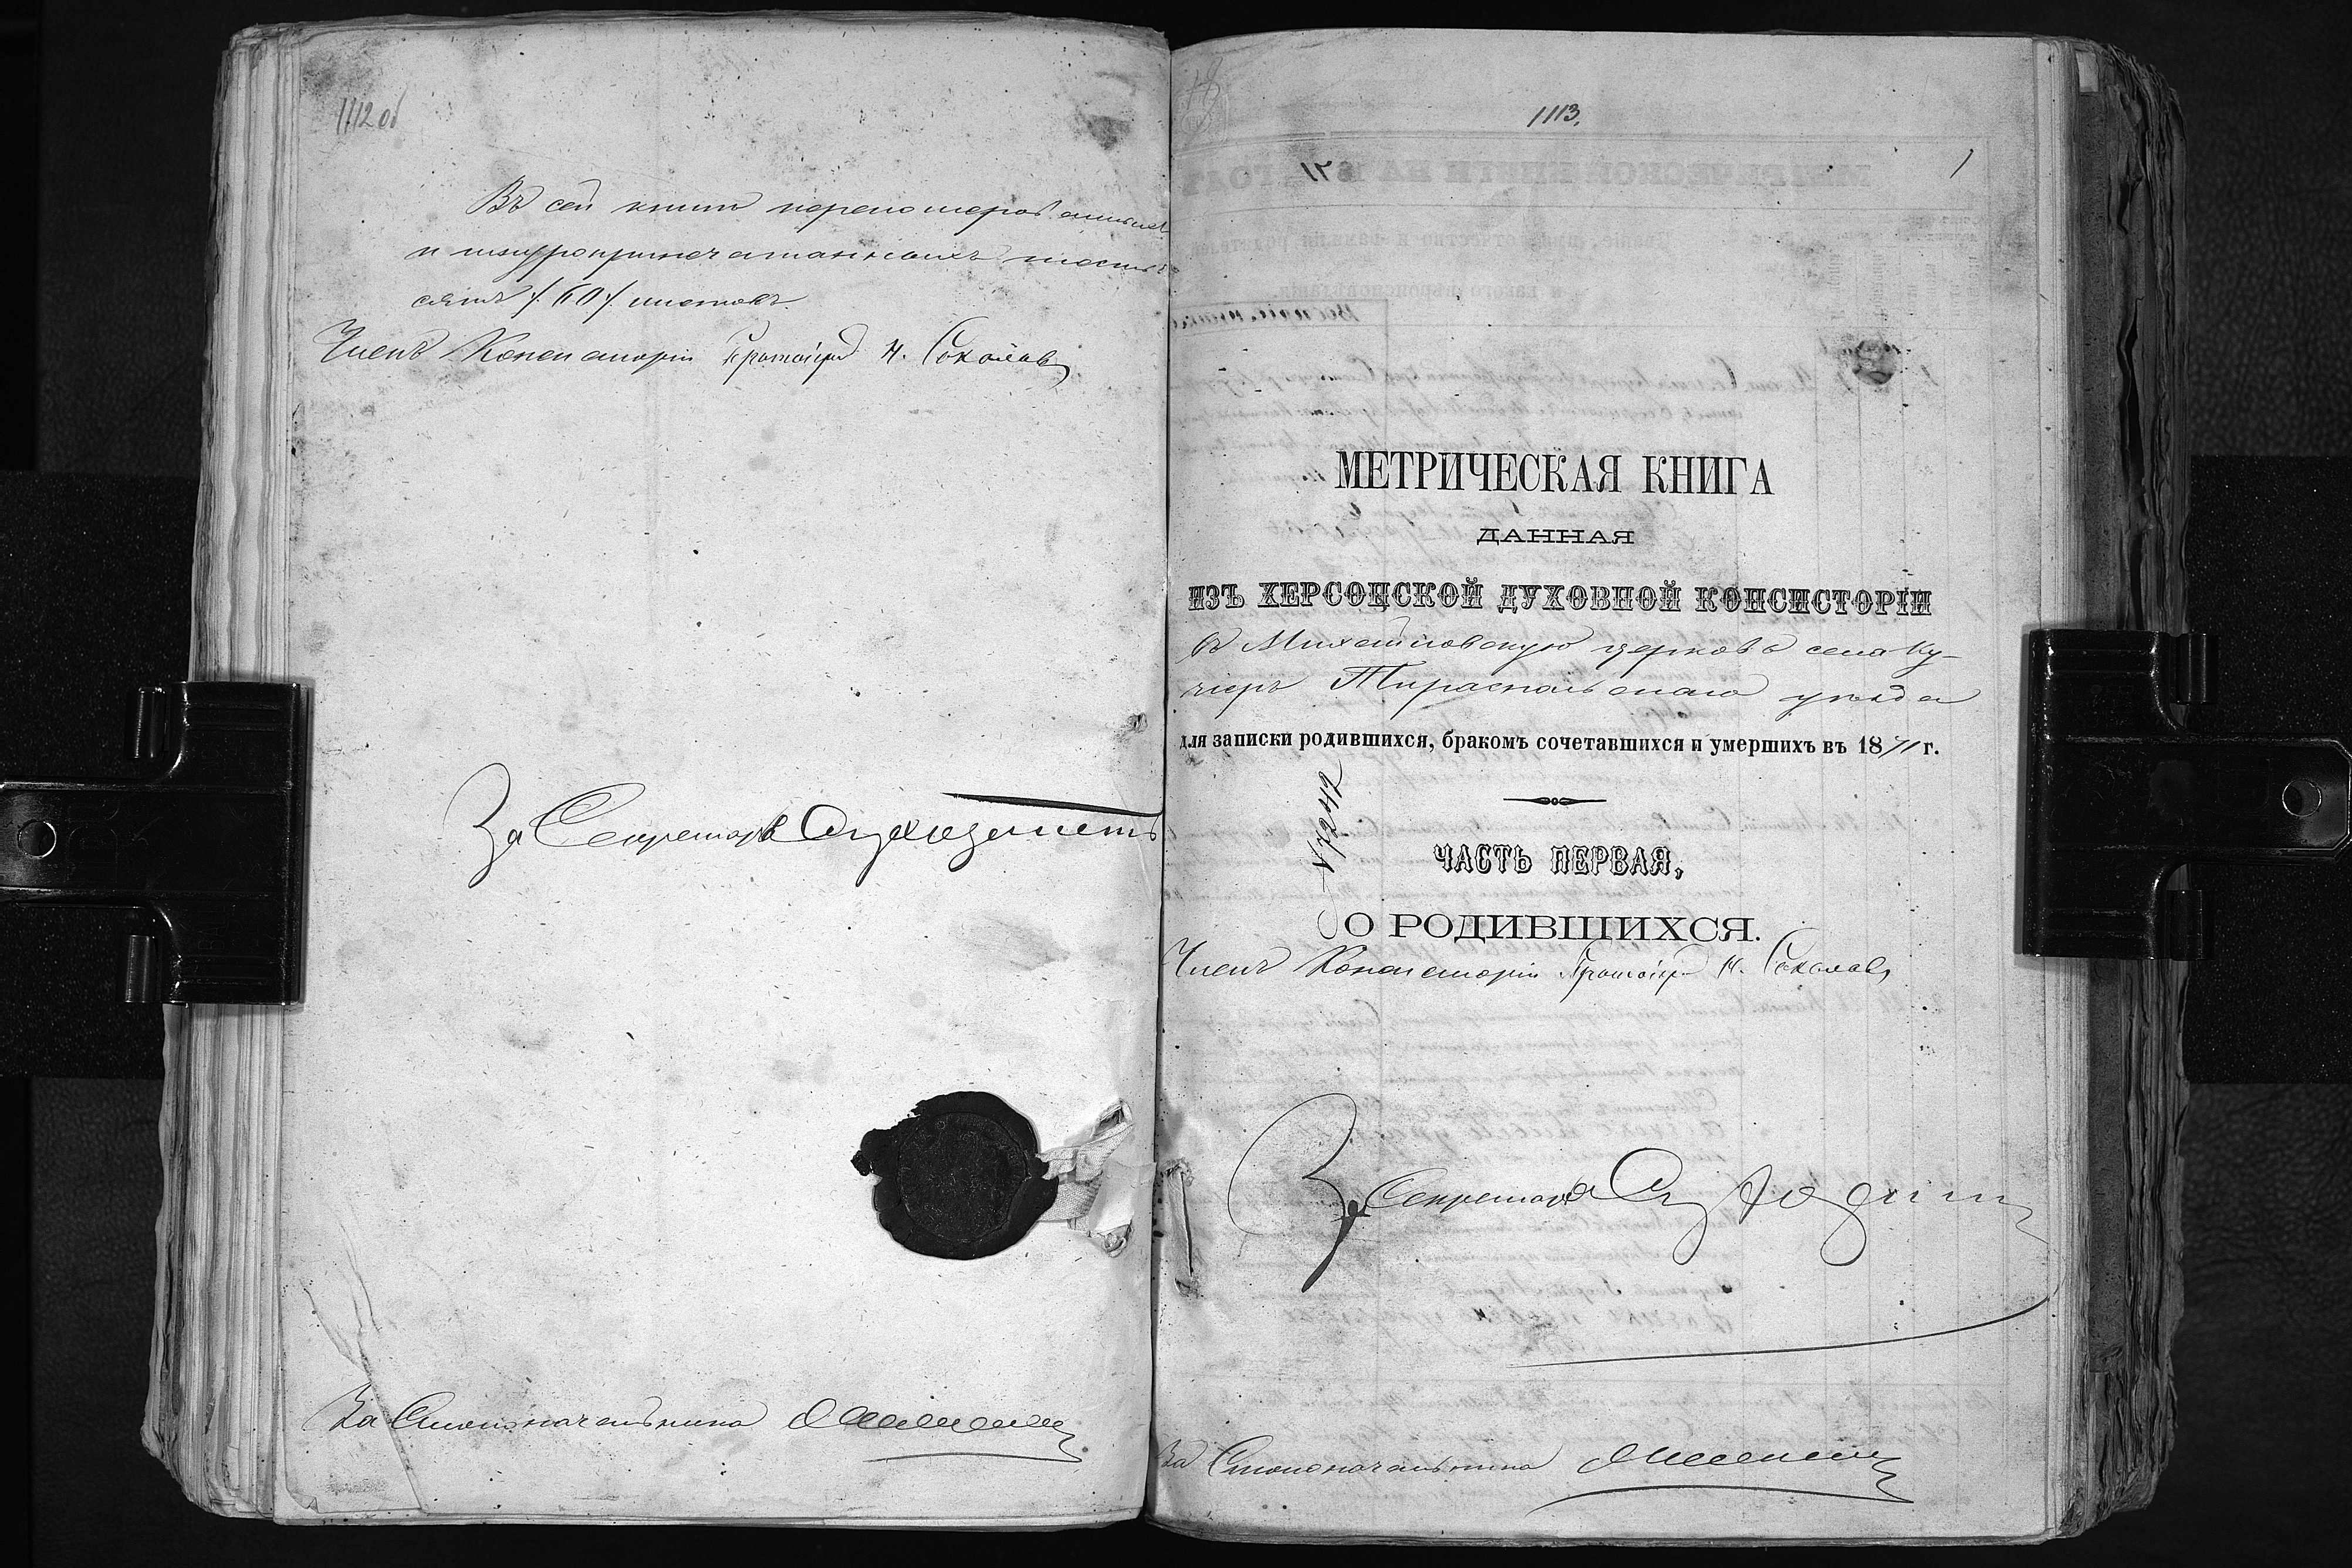 1112 об
Въ сей книгѣ перенумерованныхъ
и шнуропропечатанныхъ шестьде
сятъ /60/ листовъ
Членъ Консисторіи Протоіерей Н. Соколовъ
За Секретаря
За Столоначальника
1113.
1
МЕТРИЧЕСКАЯ КНИГА
ДАННАЯ
ИЗЪ ХЕРСОНСКОЙ ДУХОВНОЙ КОНСИСТОРІИ
въ Михайловскую церковь села Ку-
чіеръ Тираспольскаго уѣзда
для записки родившихся, бракомъ сочетавшихся и умершихъ въ 1871 г.
№ 7242
ЧАСТЬ ПЕРВАЯ,
О РОДИВШИХСЯ.
Членъ Консисторіи Протоіерей Н. Соколовъ
За Секретаря
За Столоначальника